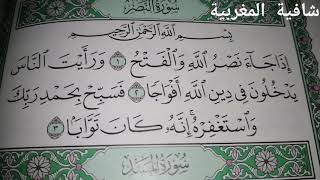 شافية المغربية
سورة النصر
بسم الله الرحمن الرحيم
إذا جاء نصر الله والفتح ١ ورأيت الناس
يدخلون في دين الله أفواجا ٢ فسبح بحمد ربك
واستغفره إنه كان توابا ٣
سورة المسد